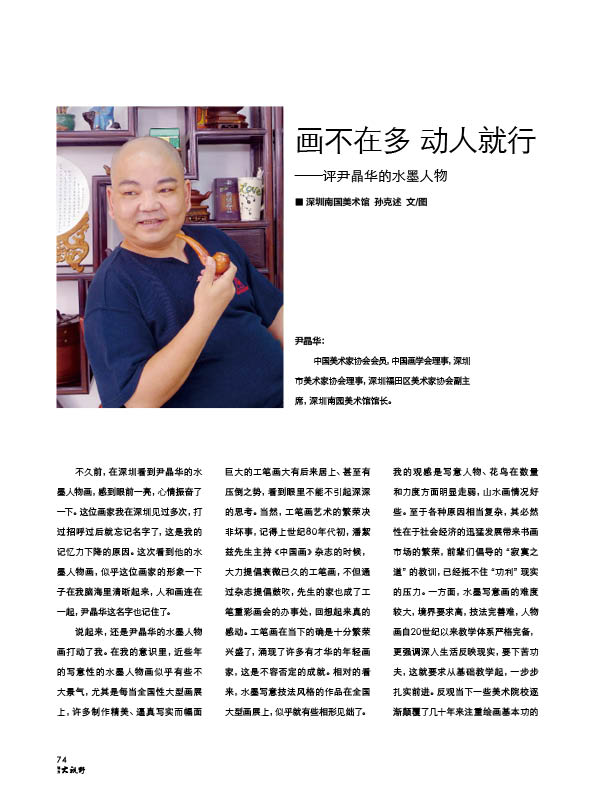 Love
画不在多 动人就行
——评尹晶华的水墨人物
■ 深圳南国美术馆 孙克述 文/图
尹晶华：
中国美术家协会会员，中国画学会理事，深圳
市美术家协会理事，深圳福田区美术家协会副主
席，深圳南园美术馆馆长。
不久前，在深圳看到尹晶华的水
墨人物画，感到眼前一亮，心情振奋了
一下。这位画家我在深圳见过多次，打
过招呼过后就忘记名字了，这是我的
记忆力下降的原因。这次看到他的水
墨人物画，似乎这位画家的形象一下
子在我脑海里清晰起来，人和画连在
一起，尹晶华这名字也记住了。
说起来，还是尹晶华的水墨人物
画打动了我。在我的意识里，近些年
的写意性的水墨人物画似乎有些不
大景气，尤其是每当全国性大型画展
上，许多制作精美、逼真写实而幅面
巨大的工笔画大有后来居上、甚至有
压倒之势，看到眼里不能不引起深深
的思考。当然，工笔画艺术的繁荣决
非坏事，记得上世纪80年代初，潘絜
兹先生主持《中国画》杂志的时候，
大力提倡衰微已久的工笔画，不但通
过杂志提倡鼓吹，先生的家也成了工
笔重彩画会的办事处，回想起来真的
感动。工笔画在当下的确是十分繁荣
兴盛了，涌现了许多有才华的年轻画
家，这是不容否定的成就。相对的看
来，水墨写意技法风格的作品在全国
大型画展上，似乎就有些相形见绌了。
我的观感是写意人物、花鸟在数量
和力度方面明显走弱，山水画情况好
些。至于各种原因相当复杂，其必然
性在于社会经济的迅猛发展带来书画
市场的繁荣，前辈们倡导的“寂寞之
道”的教训，已经抵不住“功利”现实
的压力。一方面，水墨写意画的难度
较大，境界要求高，技法完善难，人物
画自20世纪以来教学体系严格完备，
更强调深入生活反映现实，要下苦功
夫，这就要求从基础教学起，一步步
扎实前进。反观当下一些美术院校逐
渐颠覆了几十年来注重绘画基本功的
74
大视野